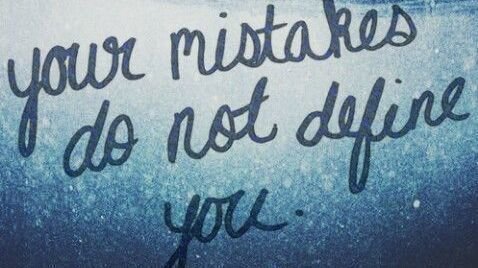 your mistakes
do not define
you.